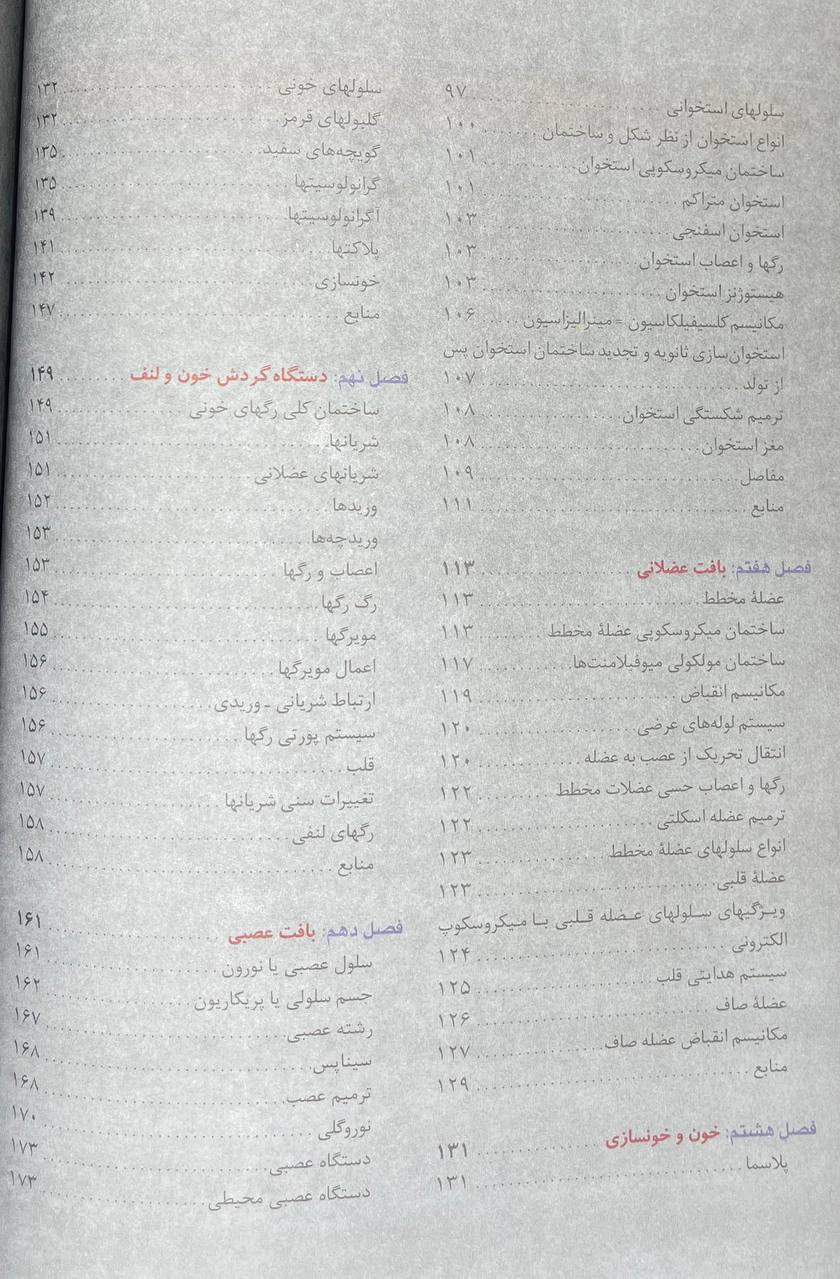 سلولهای استخوانی ........ ۹۷
انواع استخوان از نظر شکل و ساختمان ........ ۱۰۰
ساختمان میکروسکوپی استخوان ........ ۱۰۱
استخوان متراکم ........ ۱۰۱
استخوان اسفنجی ........ ۱۰۳
رگها و اعصاب استخوان ........ ۱۰۳
هیستوژنز استخوان ........ ۱۰۳
مکانیسم کلسیفیلکاسیون = مینرالیزاسیون ........ ۱۰۶
استخوان‌سازی ثانویه و تجدید ساختمان استخوان پس
از تولد ........ ۱۰۷
ترمیم شکستگی استخوان ........ ۱۰۸
مغز استخوان ........ ۱۰۸
مفاصل ........ ۱۰۹
منابع ........ ۱۱۱
فصل هفتم: بافت عضلانی ........ ۱۱۳
عضلهٔ مخطط ........ ۱۱۳
ساختمان میکروسکوپی عضلهٔ مخطط ........ ۱۱۳
ساختمان مولکولی میوفیلامنت‌ها ........ ۱۱۷
مکانیسم انقباض ........ ۱۱۹
سیستم لوله‌های عرضی ........ ۱۲۰
انتقال تحریک از عصب به عضله ........ ۱۲۰
رگها و اعصاب حسی عضلات مخطط ........ ۱۲۲
ترمیم عضله اسکلتی ........ ۱۲۲
انواع سلولهای عضلهٔ مخطط ........ ۱۲۳
عضلهٔ قلبی ........ ۱۲۳
ویـژگیهای سـلولهای عـضله قـلبی بـا مـیکروسکوپ
الکترونی ........ ۱۲۴
سیستم هدایتی قلب ........ ۱۲۵
عضلهٔ صاف ........ ۱۲۶
مکانیسم انقباض عضله صاف ........ ۱۲۷
منابع ........ ۱۲۹
فصل هشتم: خون و خونسازی ........ ۱۳۱
پلاسما ........ ۱۳۱
سلولهای خونی ........ ۱۳۲
گلبولهای قرمز ........ ۱۳۲
گویچه‌های سفید ........ ۱۳۵
گرانولوسیتها ........ ۱۳۵
آگرانولوسیتها ........ ۱۳۹
پلاکتها ........ ۱۴۱
خونسازی ........ ۱۴۲
منابع ........ ۱۴۷
فصل نهم: دستگاه گردش خون و لنف ........ ۱۴۹
ساختمان کلی رگهای خونی ........ ۱۴۹
شریانها ........ ۱۵۱
شریانهای عضلانی ........ ۱۵۱
وریدها ........ ۱۵۲
وریدچه‌ها ........ ۱۵۳
اعصاب و رگها ........ ۱۵۳
رگ رگها ........ ۱۵۴
مویرگها ........ ۱۵۵
اعمال مویرگها ........ ۱۵۶
ارتباط شریانی ـ وریدی ........ ۱۵۶
سیستم پورتی رگها ........ ۱۵۶
قلب ........ ۱۵۷
تغییرات سنی شریانها ........ ۱۵۷
رگهای لنفی ........ ۱۵۸
منابع ........ ۱۵۸
فصل دهم: بافت عصبی ........ ۱۶۱
سلول عصبی یا نورون ........ ۱۶۱
جسم سلولی یا پریکاریون ........ ۱۶۲
رشته عصبی ........ ۱۶۷
سیناپس ........ ۱۶۸
ترمیم عصب ........ ۱۶۸
نوروگلی ........ ۱۷۰
دستگاه عصبی ........ ۱۷۳
دستگاه عصبی محیطی ........ ۱۷۳